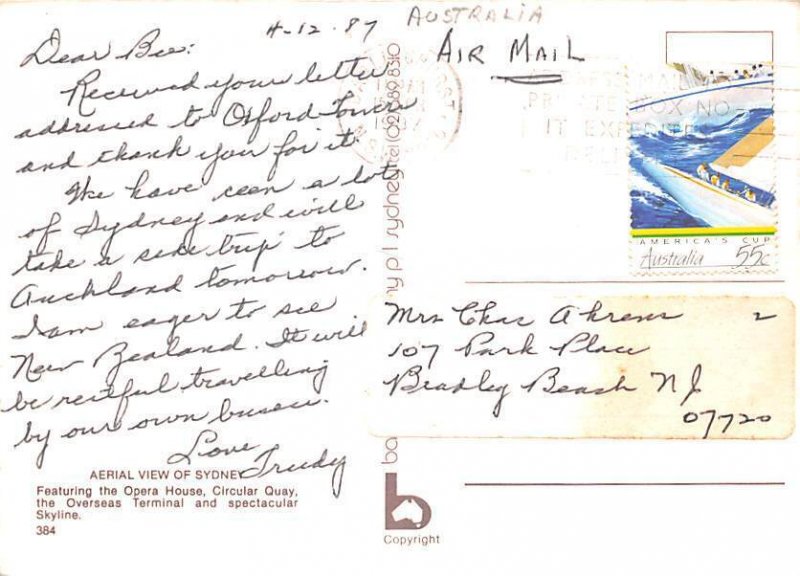 4-12-87
AUSTRALIA
AIR MAIL
Dear Bee:
Received your letter
addressed to Oxford Towers
and thank you for it.
We have seen a lot
of Sydney and will
take a side trip to
Auckland tomorrow.
I am eager to see
New Zealand. It will
be restful travelling
by our own buses.
Love,
Trudy
AERIAL VIEW OF SYDNEY
Featuring the Opera House, Circular Quay,
the Overseas Terminal and spectacular
Skyline.
384
MAIL
BOX NO
IT
AMERICA'S CUP
Australia 55c
Mrs Chas Ahrens 2
107 Park Place
Bradley Beach NJ
07720
p l sydney tel
b
Copyright